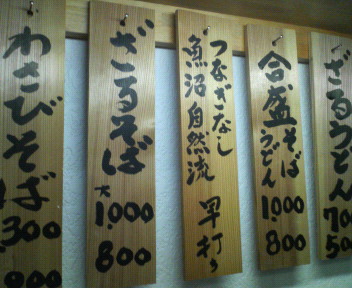 わさびそば
1,300
900
ざるそば
大 1,000
800
つなぎなし
魚沼自然流 早打ち
合盛 そば うどん
1,000
800
ざるうどん